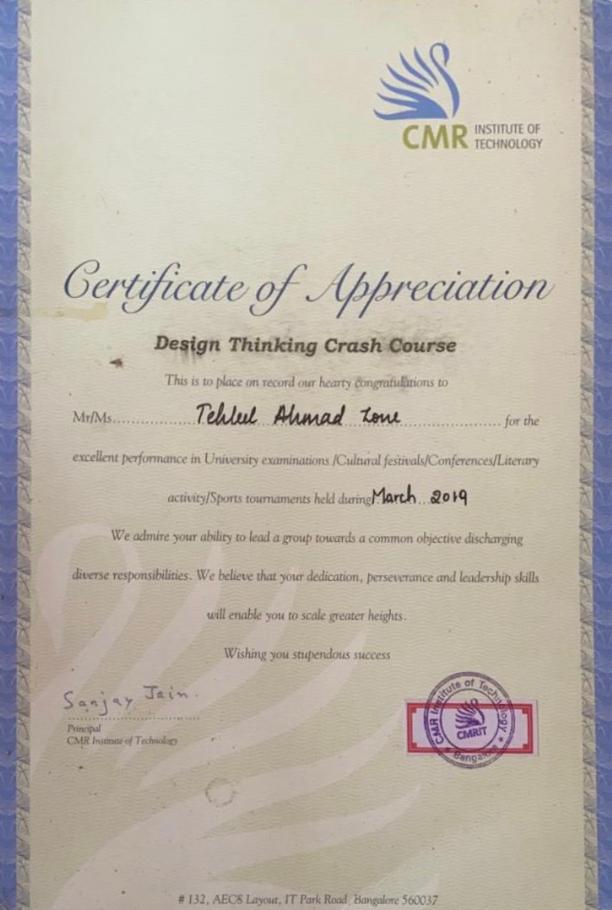 CMR INSTITUTE OF
TECHNOLOGY
Certificate of Appreciation
Design Thinking Crash Course
This is to place on record our hearty congratulations to
Mr/Ms.................Tehleel Ahmad Lone....................... for the
excellent performance in University examinations /Cultural festivals/Conferences/Literary
activity/Sports tournaments held during March 2019
We admire your ability to lead a group towards a common objective discharging
diverse responsibilities. We believe that your dedication, perseverance and leadership skills
will enable you to scale greater heights.
Wishing you stupendous success
Sanjay Jain.
Principal
CMR Institute of Technology
CMR Institute of Technology
CMRIT
Bangalore
# 132, AECS Layout, IT Park Road, Bangalore 560037